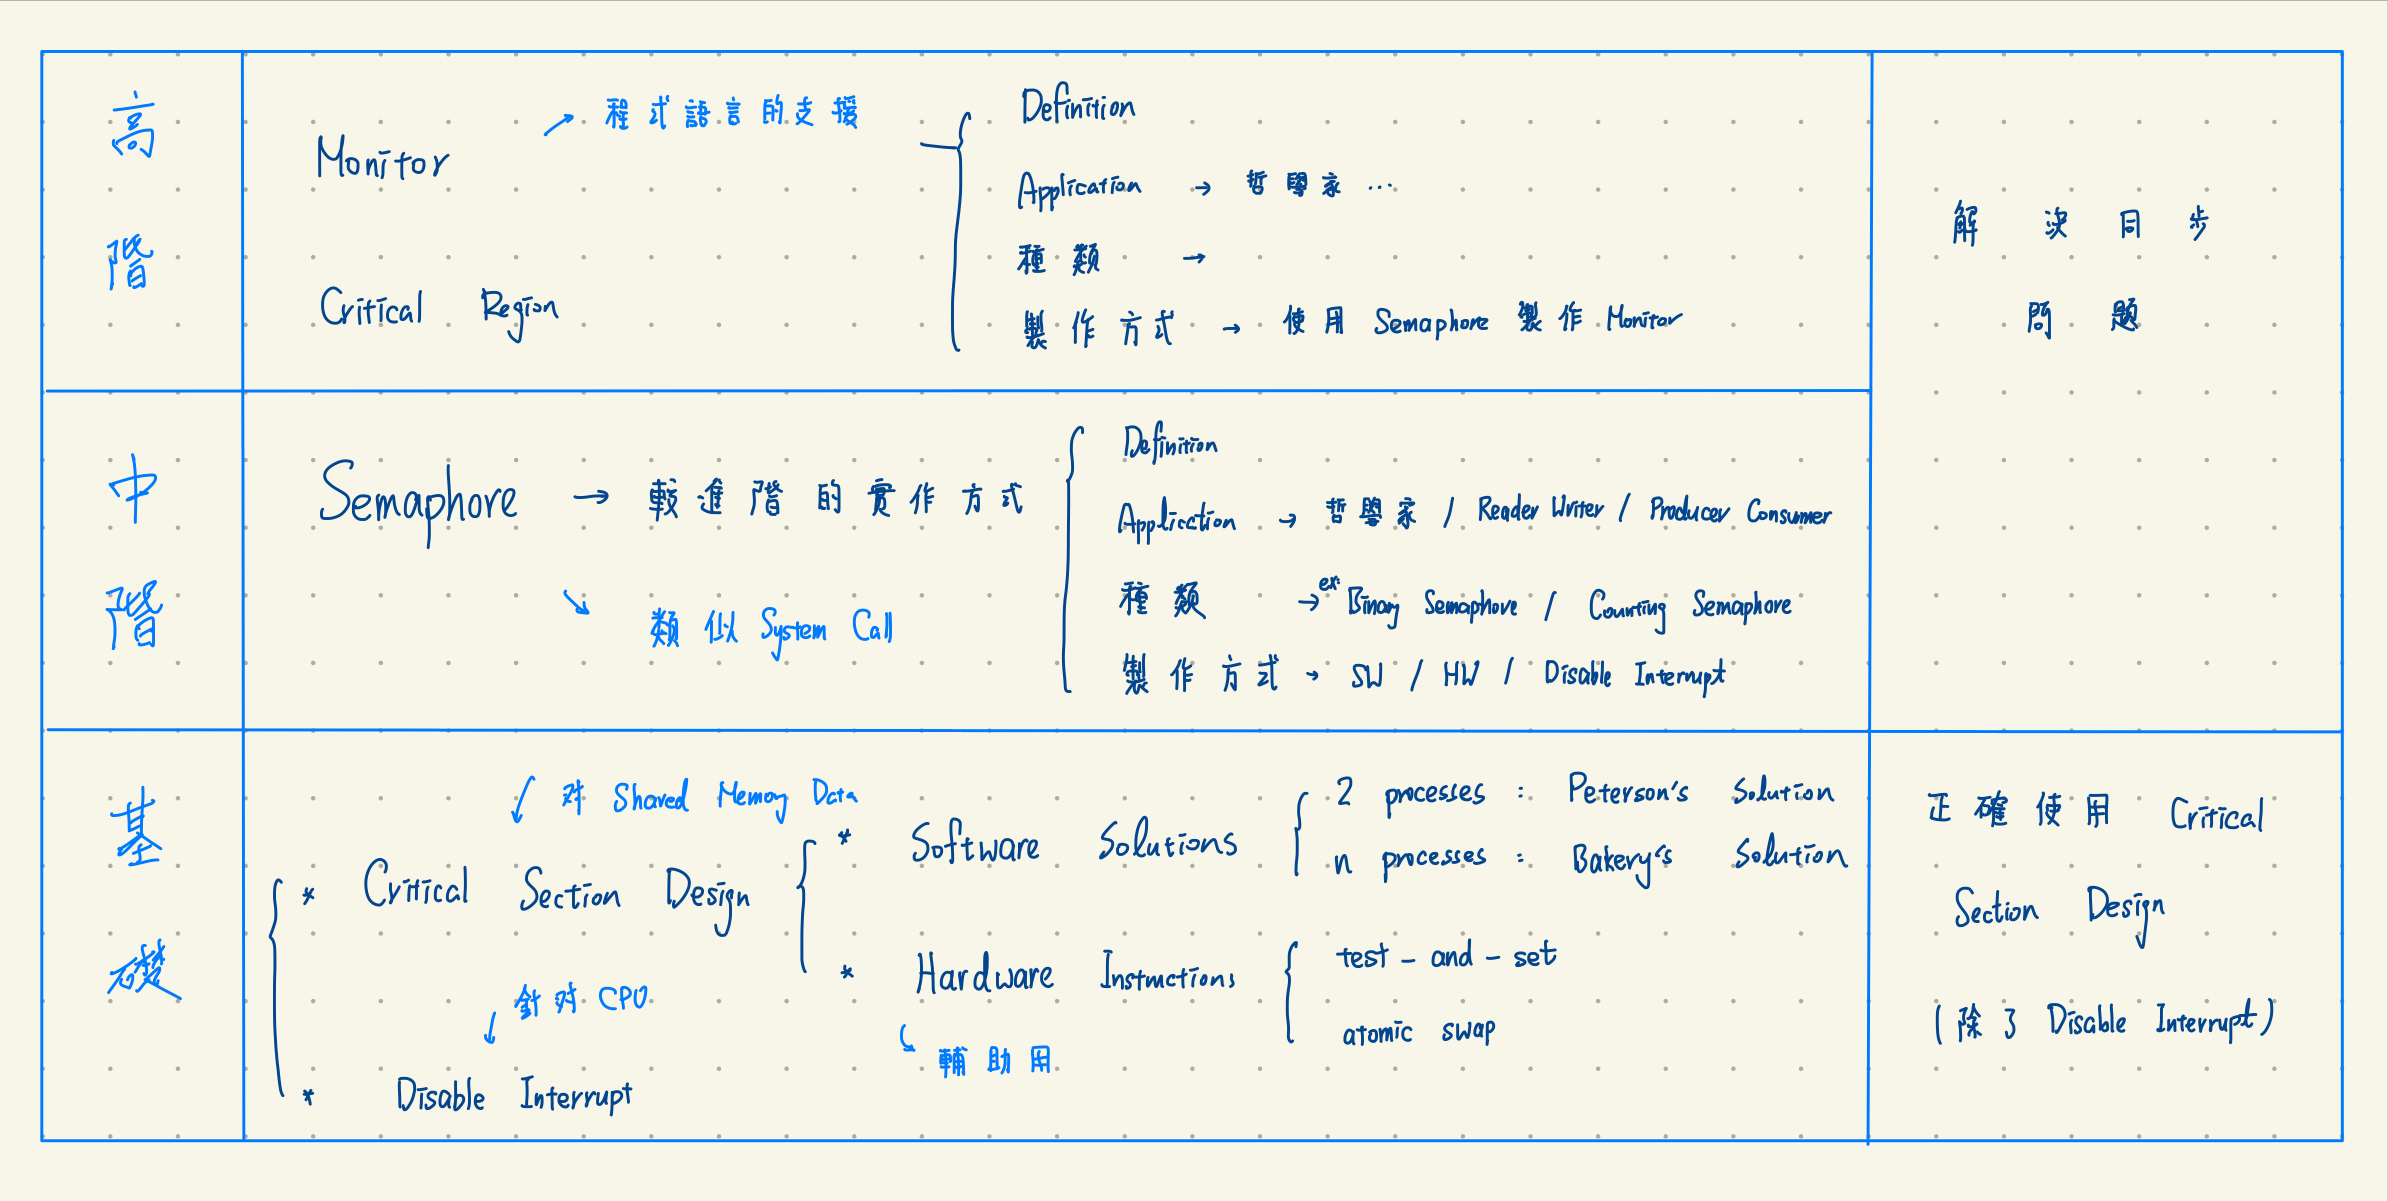 高階
Monitor
程式語言的支援
Critical Region
Definition
Application → 哲學家 ...
種類 →
製作方式 → 使用 Semaphore 製作 Monitor
解決同步
問題
中階
Semaphore → 較進階的實作方式
類似 System Call
Definition
Application → 哲學家 / Reader Writer / Producer Consumer
種類 → ex: Binary Semaphore / Counting Semaphore
製作方式 → SW / HW / Disable Interrupt
基礎
对 Shared Memory Data
* Critical Section Design
針对 CPU
* Disable Interrupt
* Software Solutions
2 processes : Peterson's Solution
n processes : Bakery's Solution
* Hardware Instructions
輔助用
test - and - set
atomic swap
正確使用 Critical
Section Design
(除了 Disable Interrupt)